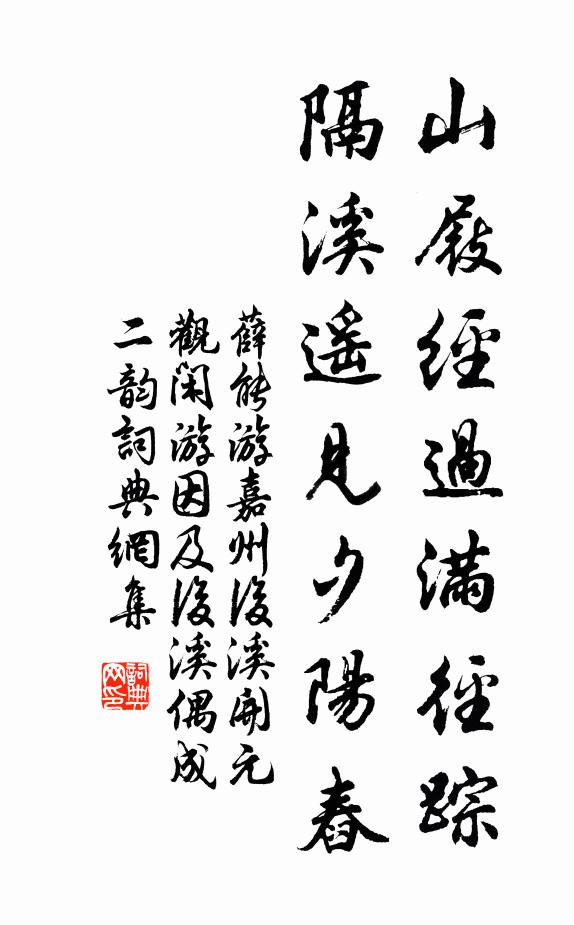 山屐經過滿徑踪
隔溪遥見夕陽舂
薛能游嘉州後溪開元
觀闲游因及後溪偶成
二韵詞典網集
詞典网印